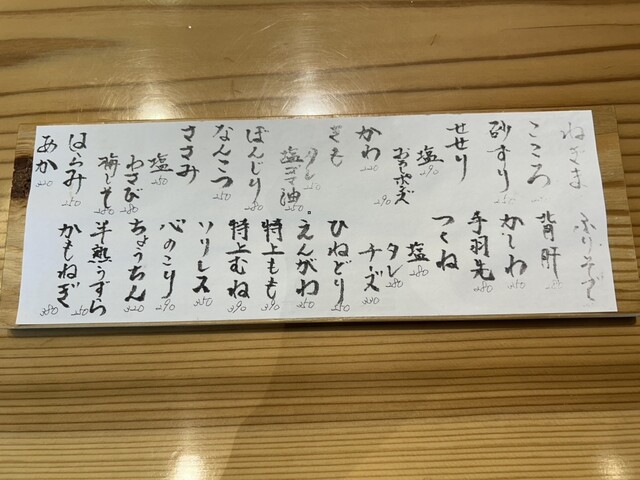 ねぎま
こころ 250
砂ずり 250
せせり
塩 290
おろしポン酢 290
かわ 220
きも
タレ 250
塩ゴマ油 250
ぼんじり 280
なんこつ 250
ささみ
塩 250
わさび 280
梅しそ 280
はらみ 250
あか 220
ふりそで
背肝
かしわ 250
手羽先 280
つくね
塩 280
タレ 280
チーズ 330
ひねどり 250
えんがわ 350
特上もも 390
特上むね 390
ソリレス 350
心のこり 290
ちょうちん 320
半熟うずら 250
かもねぎ 380